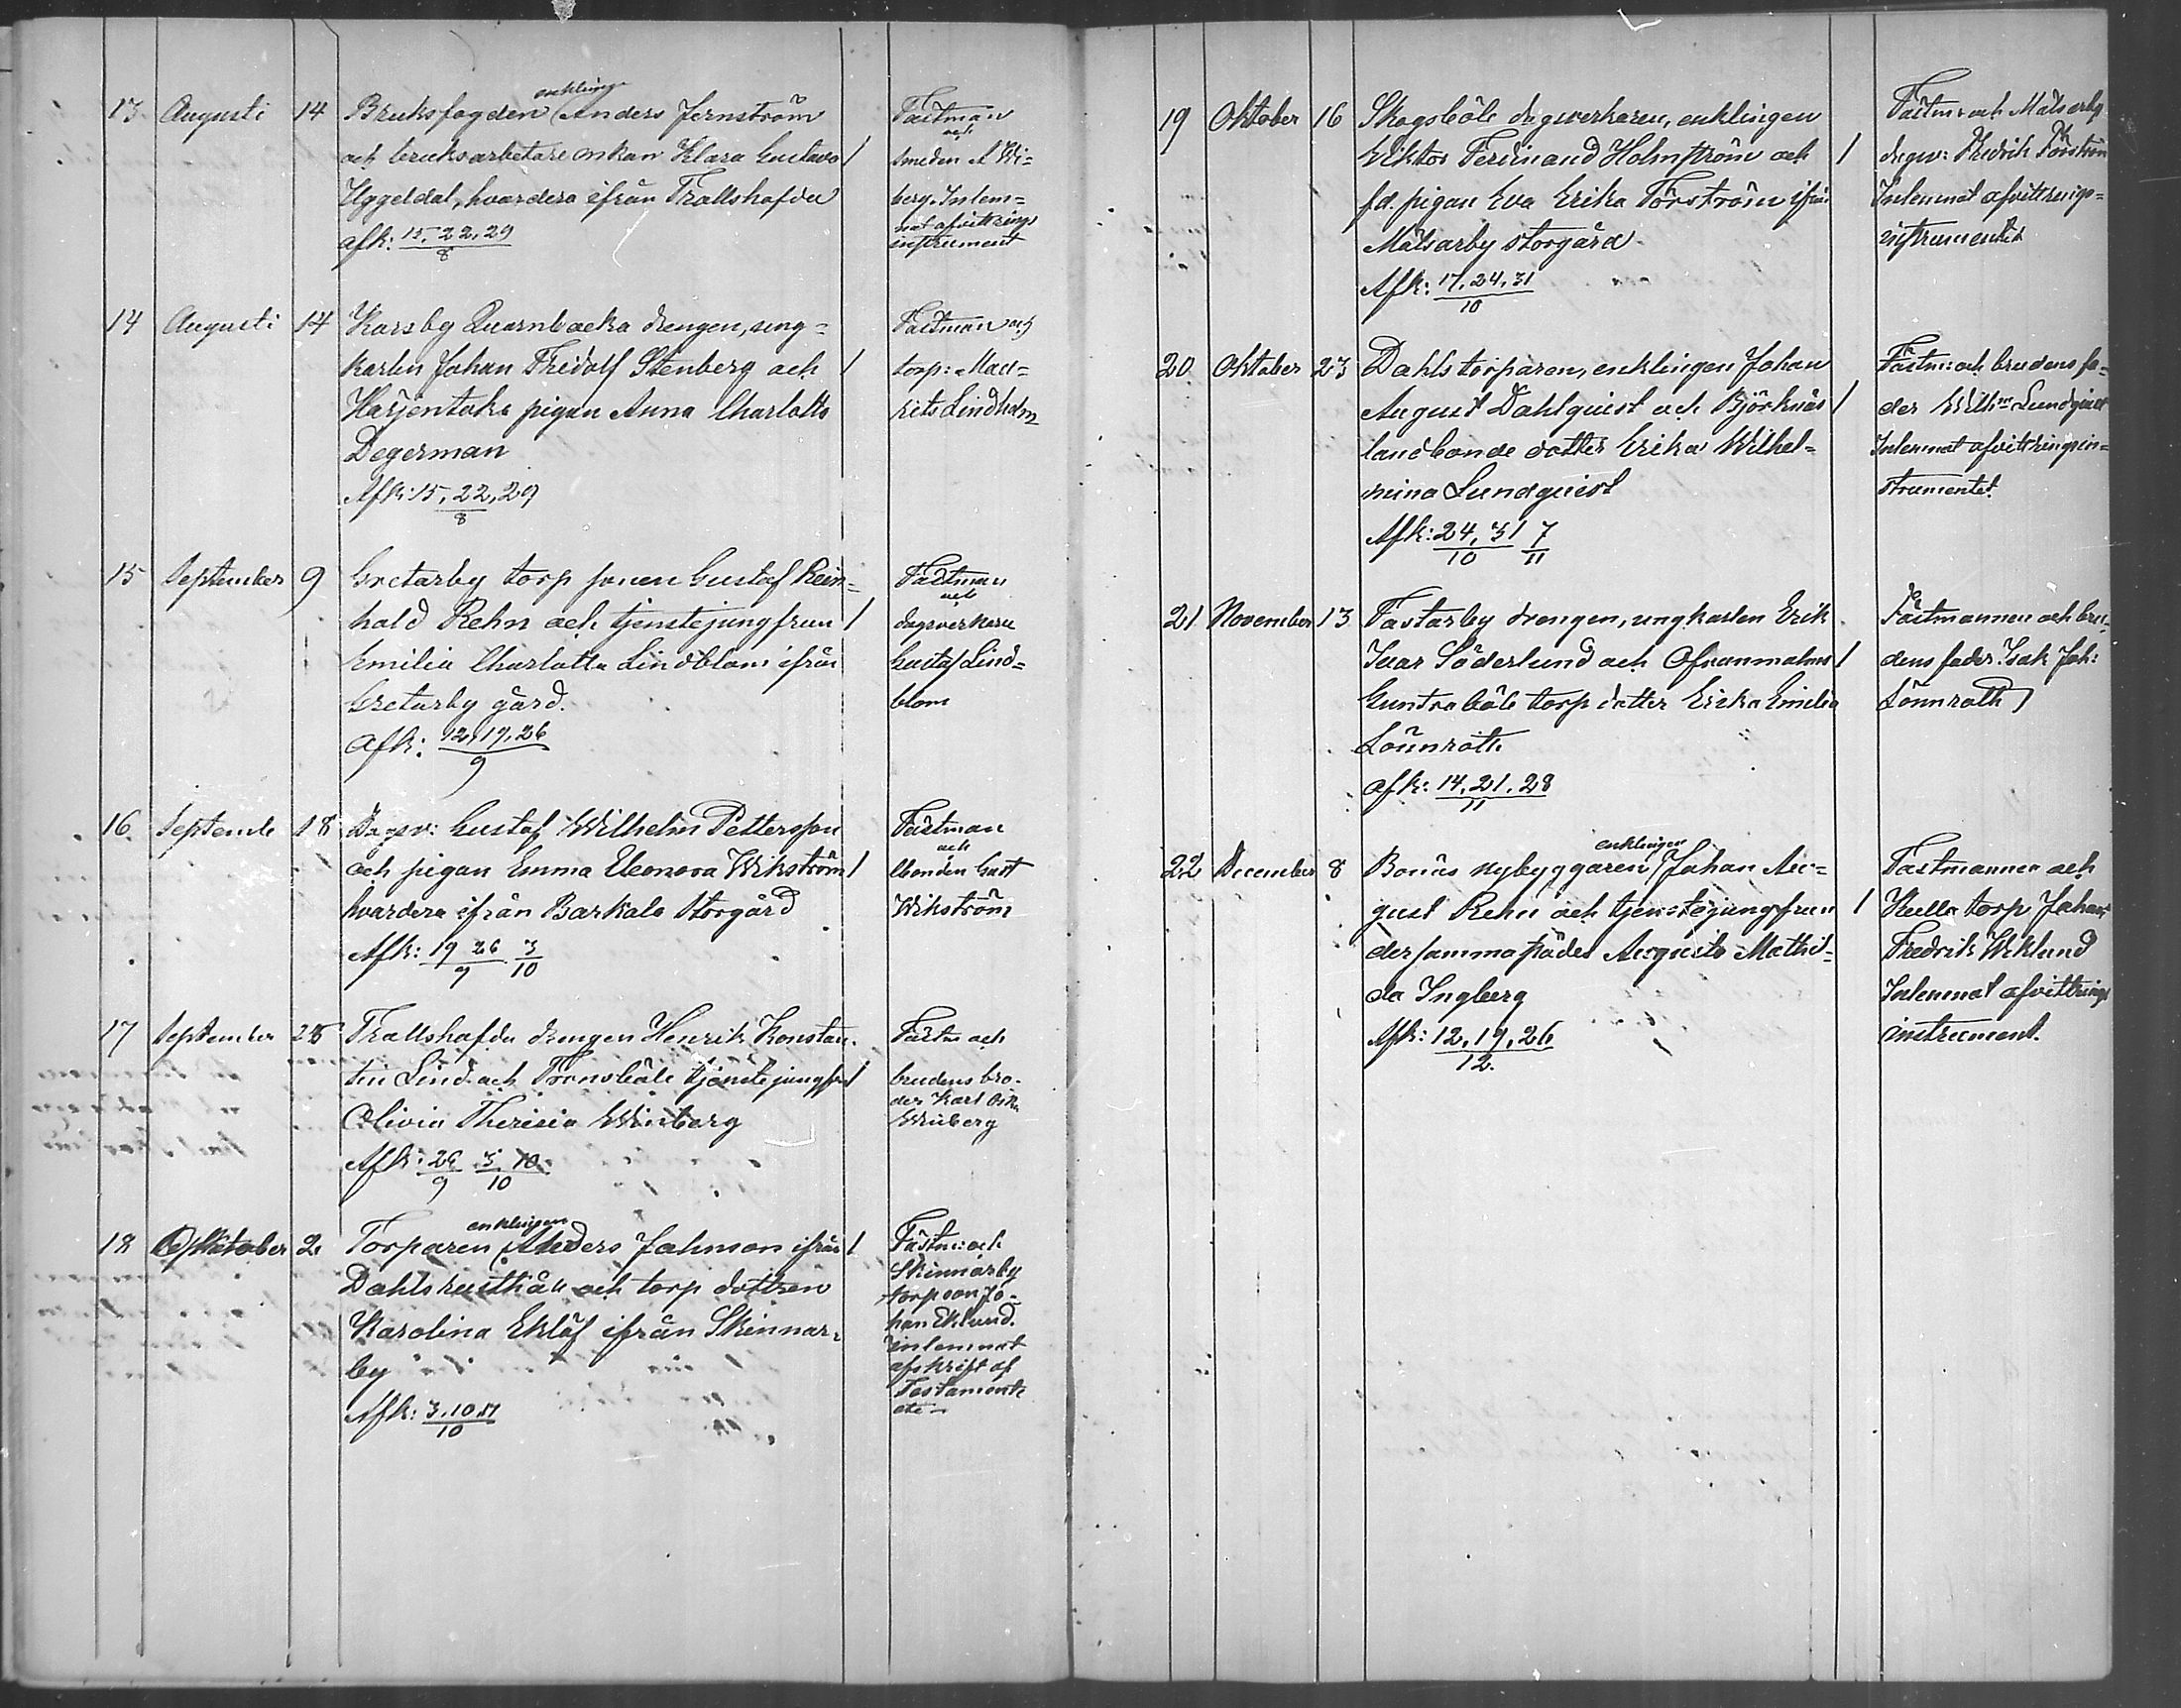 13 Augusti 14 Bruksfogden enklingen Anders Jernström
och bruksarbetare enkan Klara Gustava /
Uggeldal, hvardera ifrån Trallshafda
afk: 15, 22, 29
8
Fästman
och
smeden A Wi-
berg. Inlem-
nat afvittrings
instrument
14 Augusti 14 Karsby Quarnbacka drengen, ung-
karlen Johan Fridolf Stenberg och /
Harjentaka pigan Anna Charlotta
Degerman
Afk: 15, 22, 29
8
Fästman och
torp:
Lindholm
15 September 9 Gretarby torp sonen Gustaf Rein-
hold Rehn och tjenstejungfrun /
Emilia Charlotta Lindblom ifrån
Gretarby gård.
Afk: 12, 19, 26
9
Fästman
och
dagsverkare
Gustaf Lind-
blom
16 Septemb 18 Dagsv: Gustaf Wilhelm Pettersson
och pigan Emma Eleonora Wikström /
hvardera ifrån Barkala Storgård
Afk: 19 26 3
9 10
Fästman
och
bonden Gust
Wikström
17 September 25 Trallshafda drengen Henrik Konstan-
tin Lind och Formsböle tjenstejungfr /
Olivia Theresia Winberg
Afk: 26 3. 10
9 10
Fästm och
brudens bro-
der Karl Osk
Winberg
18 Oktober 2 Torparen enklingen Anders Johnson ifrån /
Dahls rusthåll och torp dottren
Karolina Eklöf ifrån Skinnar-
by
Afk: 3. 10 17
10
Fästm: och
Skinnarby
torpson Jo-
han Eklund.
inlemnat
afskrift af
Testamente
etc -
19 Oktober 16 Skogsböle dagsverkaren, enklingen
Viktor Ferdinand Holmström och /
fd. pigan Eva Erika Törström ifrån
Mälsarby storgård
Afk: 17, 24, 31
10
Fästm: och Mälsarby
dagsv: Fredrik Törström
Inlemnat afvittrings-
instrumentet
20 Oktober 23 Dahls torparen, enklingen Johan
August Dahlquist och Björknäs /
landbonde dotter Erika Wilhel-
mina Lundquist
Afk: 24, 31 7
10 11
Fästm: och brudens fa-
der Wilhm Lundquist
Inlemnat afvittringsin-
strumentet
21 November 13 Fastarby drengen, ungkarlen Erik
Ivar Söderlund och Ofvanmalms /
Guntraböle torp dotter Erika Emilia
Lönnroth
Afk: 14, 21, 28
11
Fästmannen och bru-
dens fader Isak Joh:
Lönnroth
22 December 8 Bonäs nybyggaren enklingen Johan Au-
gust Rehn och tjenstejungfrun /
dersammastädes Augusta Mathil-
da Ingberg
Afk: 12, 19, 26
12.
Fästmannen och
Kulla torp Johan
Fredrik Weklund
Inlemnat afvittrings
instrument.